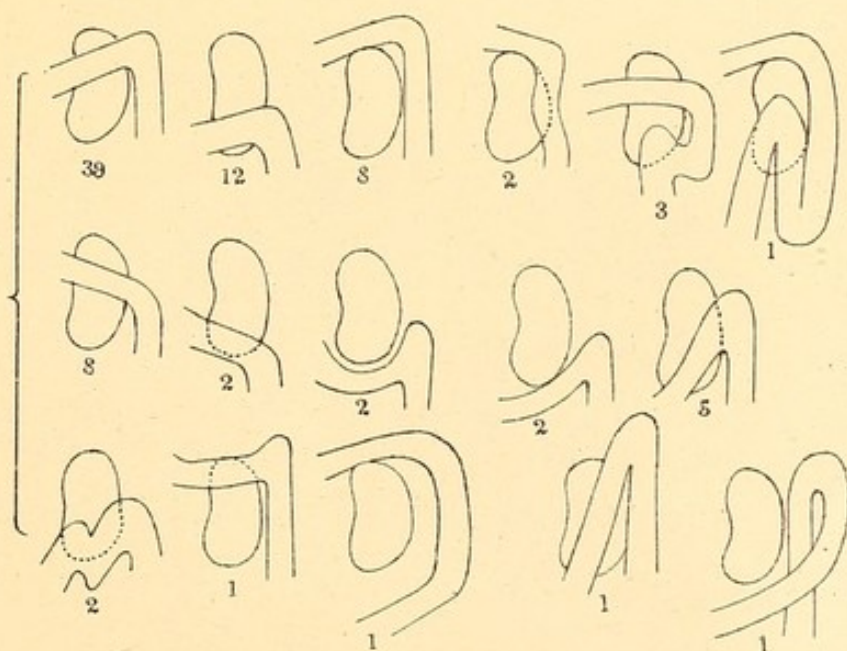 39 12 8 2 3 1
8 2 2 2 5
2 1 1 1 1